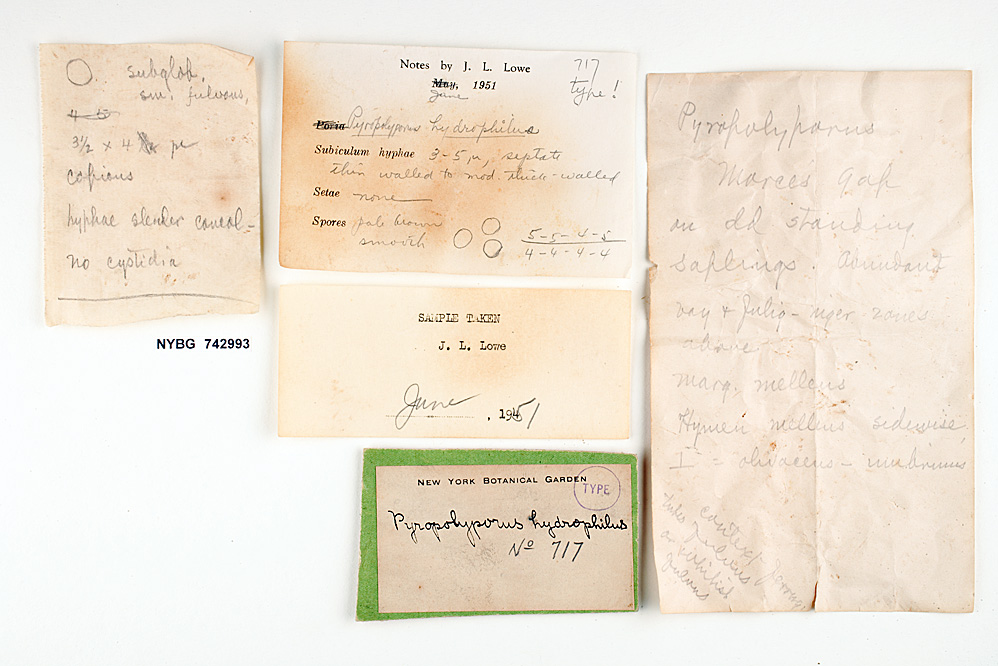 subglob.
sm. fulvous,
4-5
3½ x 4 µ
copious
hyphae slender concol-
no cystidia
NYBG 742993
Notes by J. L. Lowe
717
type!
May, 1951
June
Poria Pyropolyporus hydrophilus
Subiculum hyphae 3-5µ, septate
thin walled to mod. thick-walled
Setae none
Spores pale brown
smooth
5-5-4-5
4-4-4-4
SAMPLE TAKEN
J. L. Lowe
June, 1951
NEW YORK BOTANICAL GARDEN
TYPE
Pyropolyporus hydrophilus
No 717
Pyropolyporus
Morces Gap
on old standing
saplings. Abundant
bay & fulig-niger zones
above
marg. melleus
Hymen melleus sidewise,
I = olivaceus-umbrinus
context
tubes fulvous
fulvous